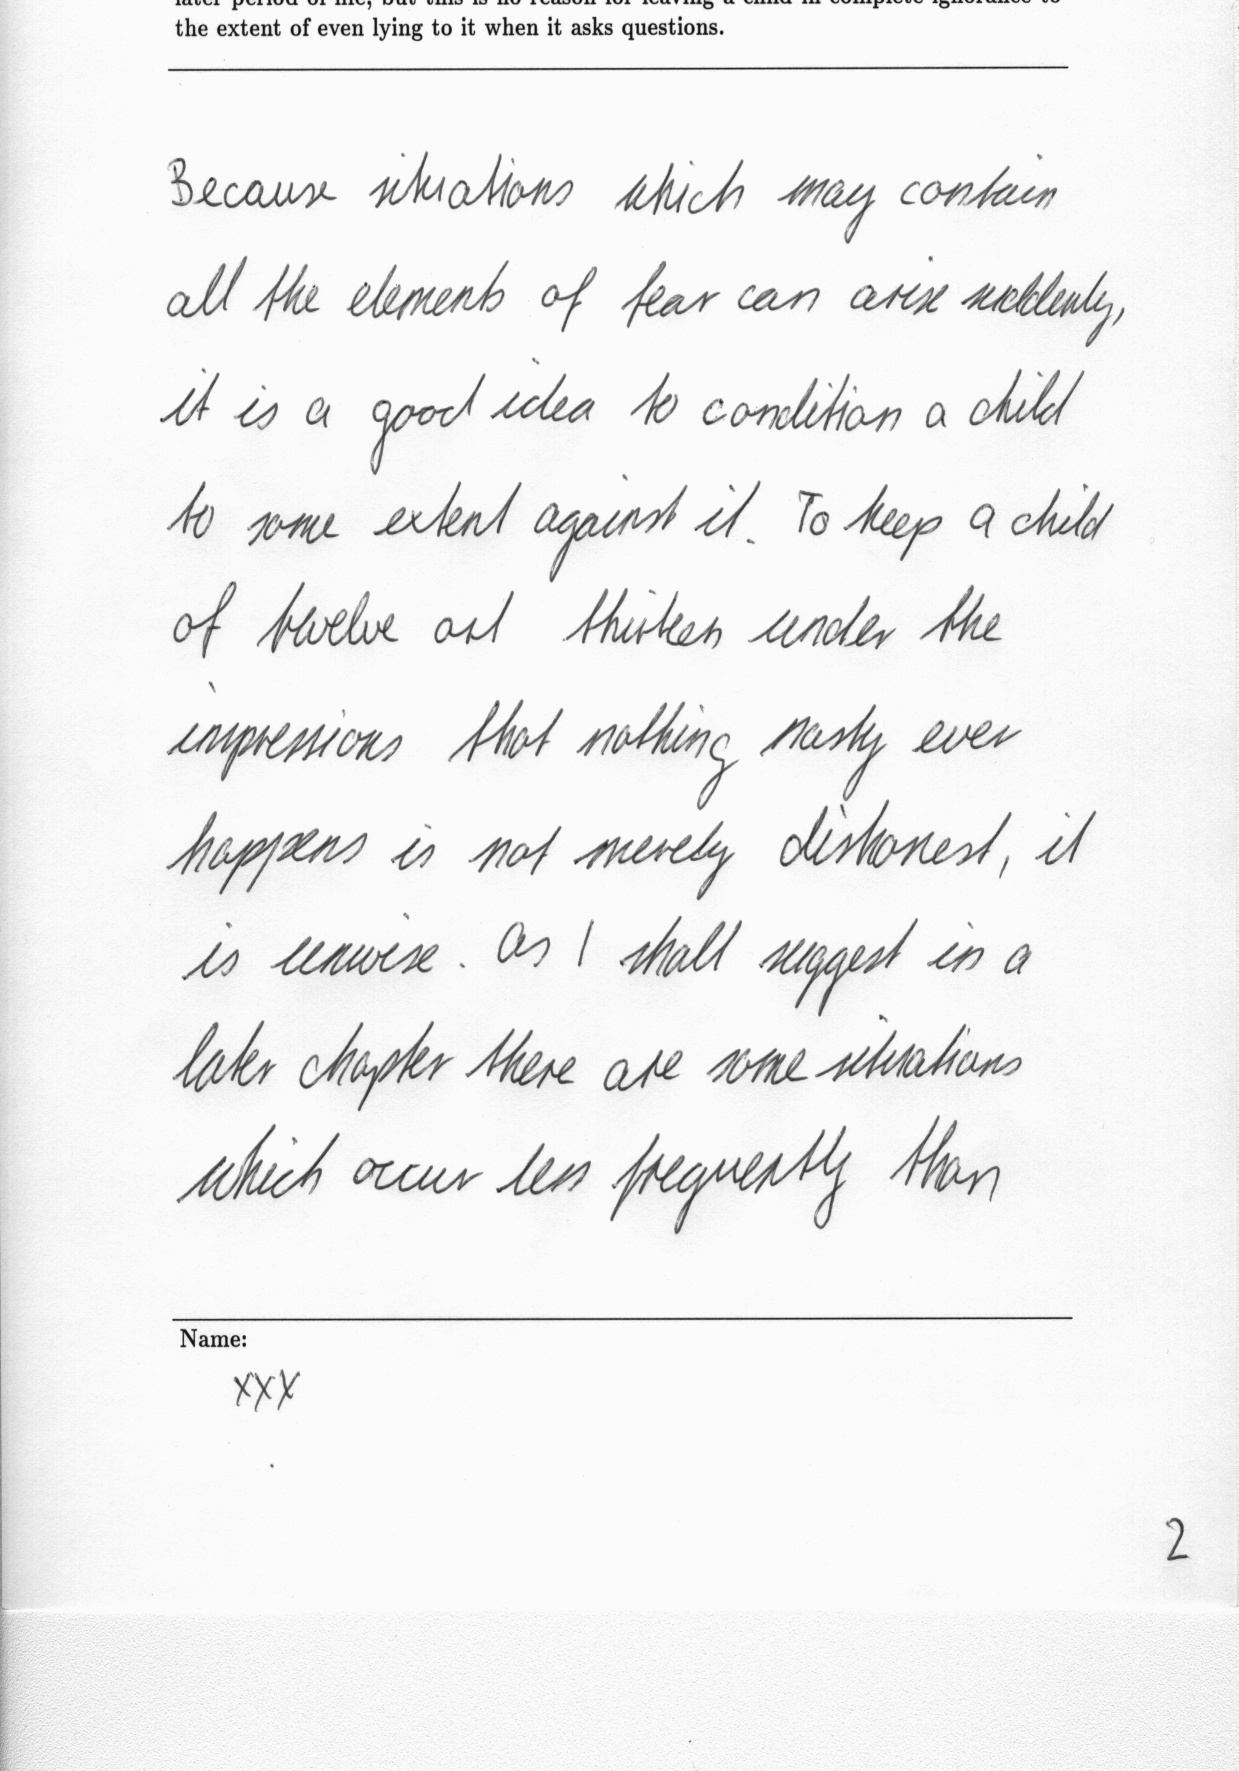 later period of life, but this is no reason for leaving a child in complete ignorance to
the extent of even lying to it when it asks questions.
Because situations which may contain
all the elements of fear can arise suddenly,
it is a good idea to condition a child
to some extent against it. To keep a child
of twelve ort thirteen under the
impressions that nothing nasty ever
happens is not merely dishonest, it
is unwise. As I shall suggest in a
later chapter there are some situations
which occur less frequently than
Name:
XXX
2